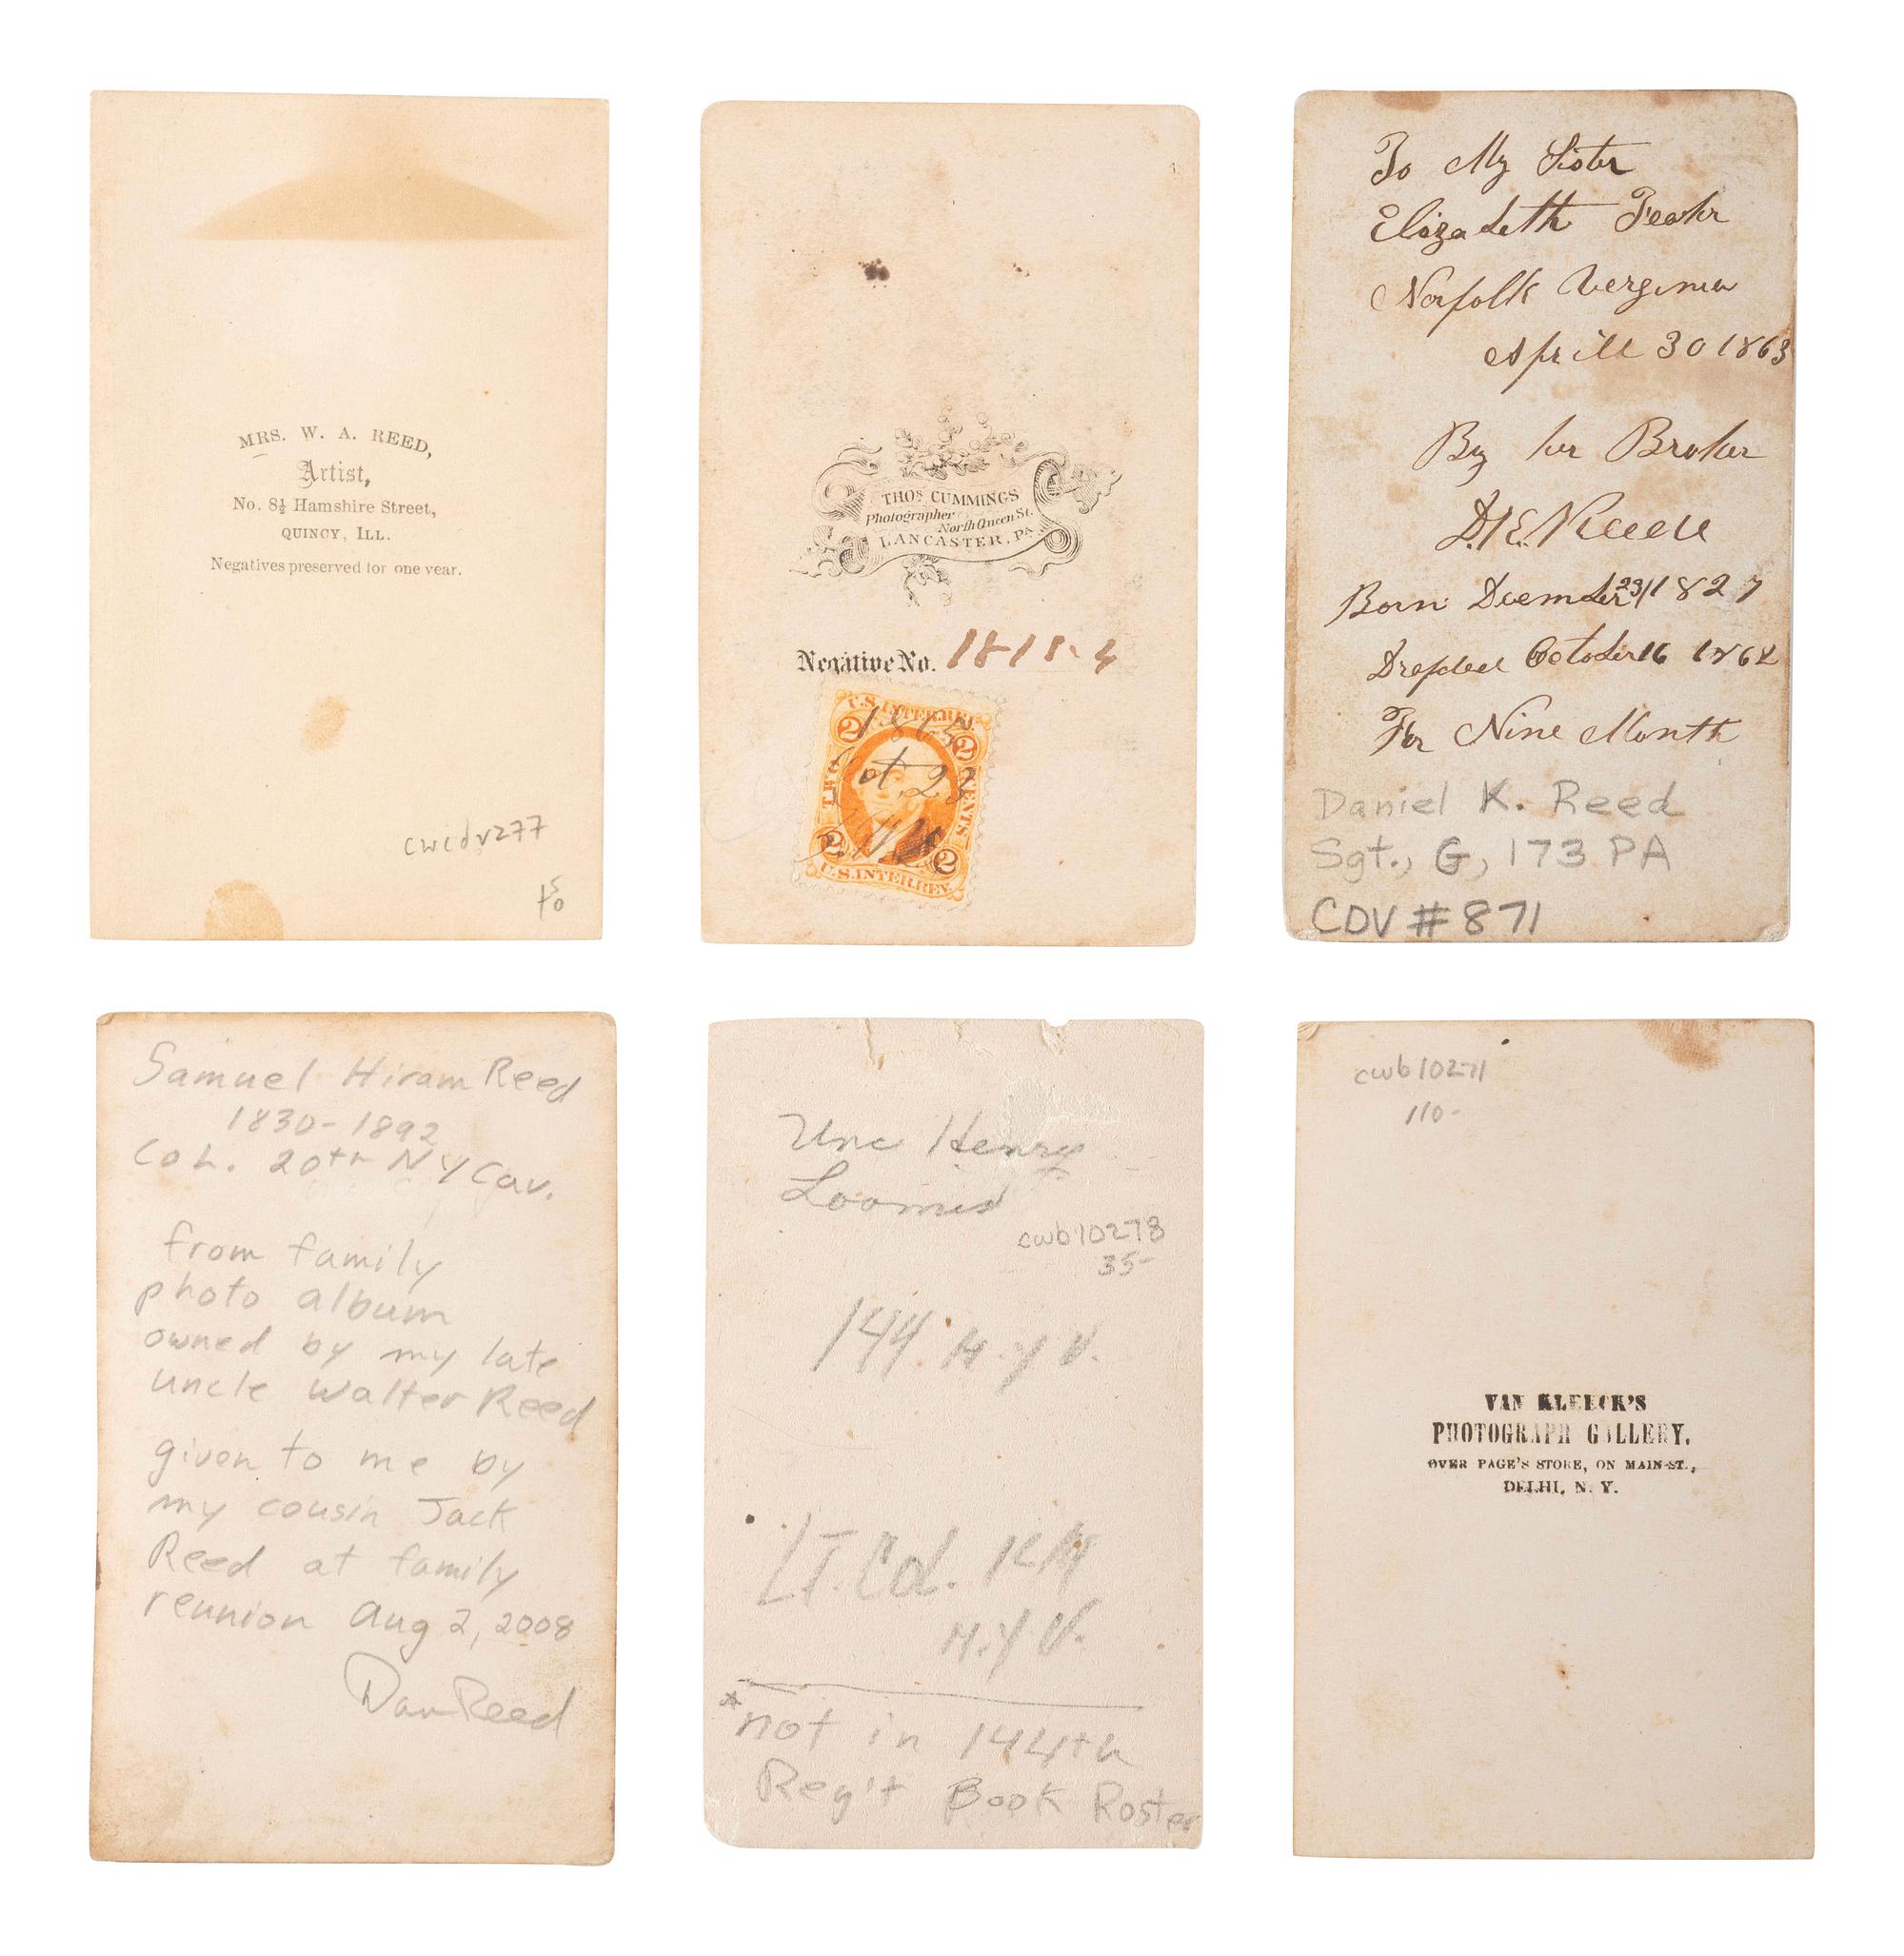 MRS. W. A. REED,
Artist,
No. 8½ Hamshire Street,
QUINCY, ILL.
Negatives preserved for one year.
cwcdv277
THOS CUMMINGS
Photographer
North Queen St.
LANCASTER, PA
Negative No.
U.S. INTER. REV.
2 2
1865
TWO CENTS
Oct. 23
2 2
U.S. INTER. REV.
To My Sister
Elizabeth
Norfolk Verginia
Aprill 30 1863
By her Brother
Born 23 1827
October 16 1862
For Nine Month
Daniel K. Reed
Sgt., G, 173 PA
CDV # 871
Samuel Hiram Reed
1830-1892
Col. 20th NY Cav.
from family
photo album
owned by my late
uncle Walter Reed
given to me by
my cousin Jack
Reed at family
reunion Aug 2, 2008
Dan Reed
Unc Henry
Loomis
cwb10278
35-
144 N.Y V.
LT. Col. 144
N.Y V.
*not in 144th
Reg't Book Roster
cwb10271
110-
VAN KLEECK'S
PHOTOGRAPH GALLERY,
OVER PAGE'S STORE, ON MAIN-ST.,
DELHI, N. Y.